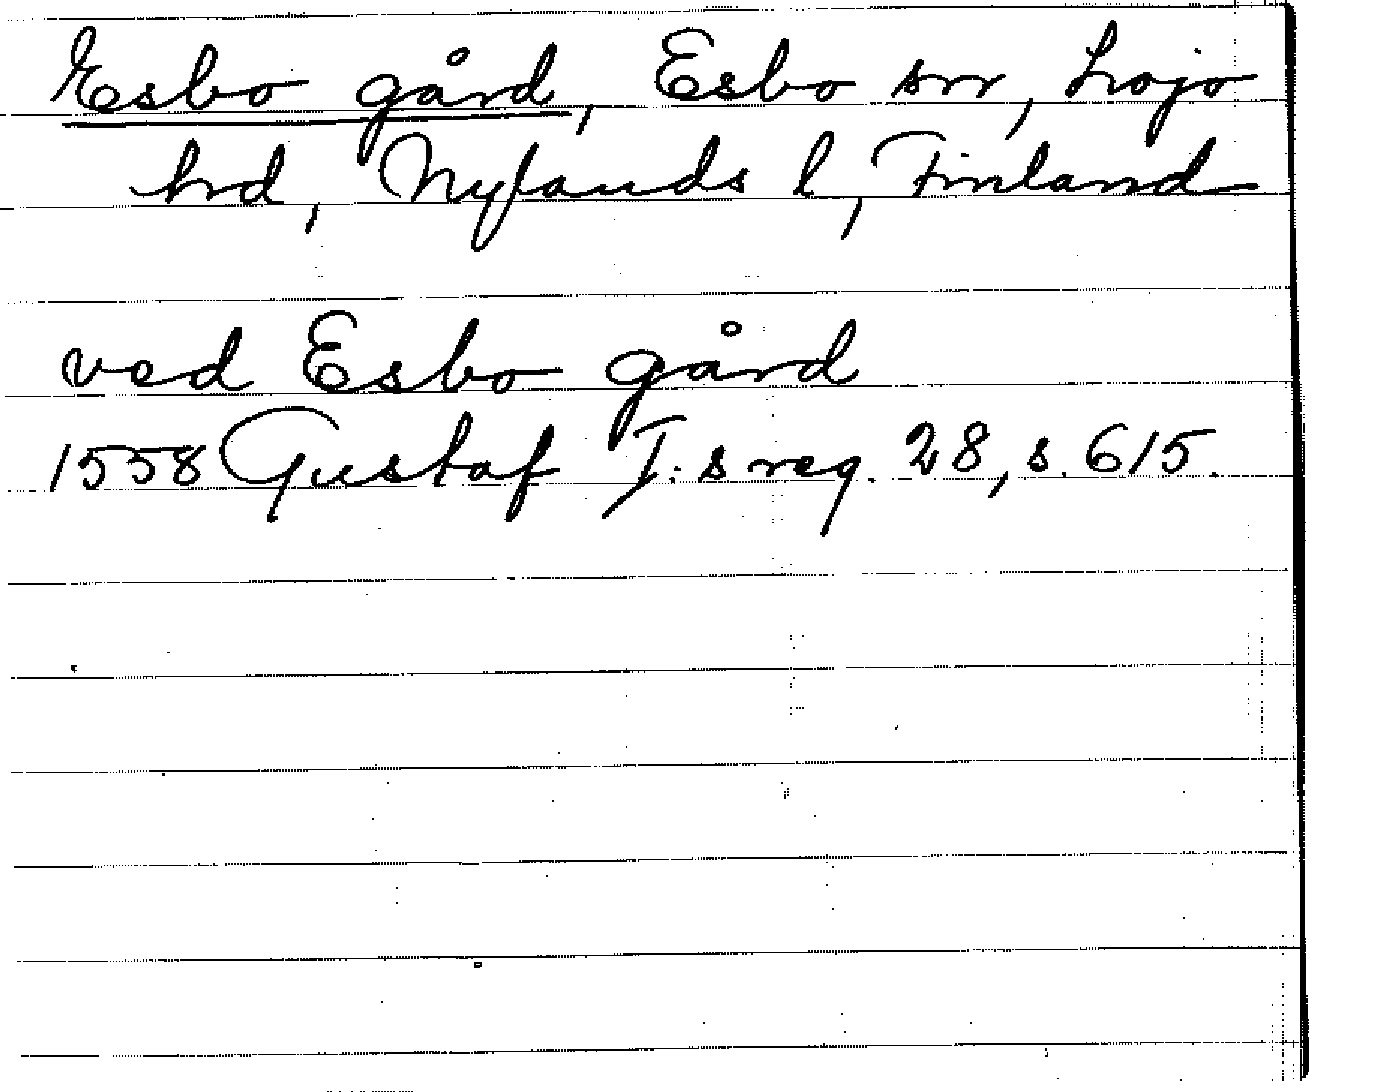 Esbo gård, Esbo sn, Lojo
hrd, Nylands l, Finland
ved Esbo gård
1558 Gustaf I:s reg. 28, s. 615.